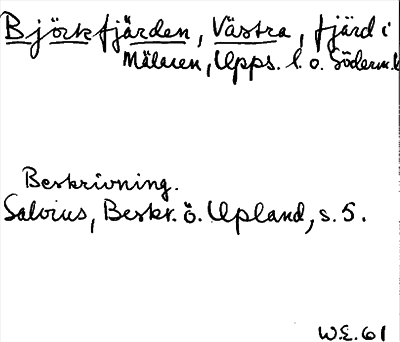 Björkfjärden, Västra, fjärd i
Mälaren, Upps. l. o. Söderm. l
Beskrivning.
Salvius, Beskr. ö. Upland, s. 5.
W.E. 61